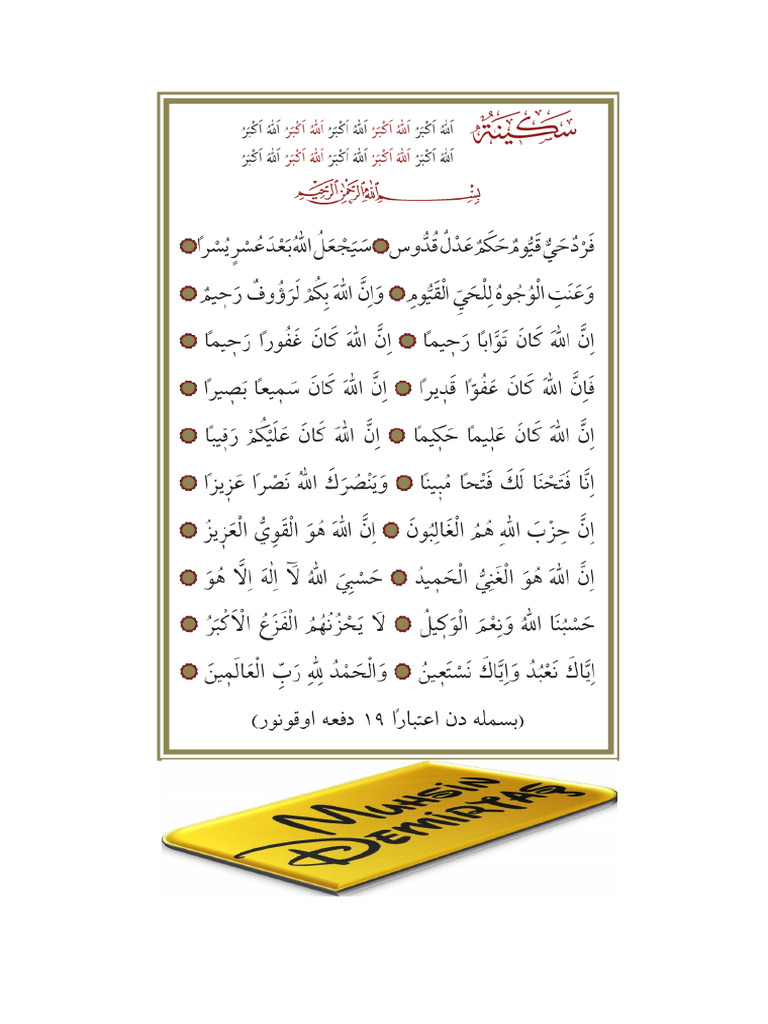 سَكِينَةٌ
اَللّٰهُ اَكْبَرُ اَللّٰهُ اَكْبَرُ اَللّٰهُ اَكْبَرُ اَللّٰهُ اَكْبَرُ اَللّٰهُ اَكْبَرُ
اَللّٰهُ اَكْبَرُ اَللّٰهُ اَكْبَرُ اَللّٰهُ اَكْبَرُ اَللّٰهُ اَكْبَرُ اَللّٰهُ اَكْبَرُ
بِسْمِ اللّٰهِ الرَّحْمٰنِ الرَّحِيمِ
فَرْدٌ حَيٌّ قَيُّومٌ حَكَمٌ عَدْلٌ قُدُّوس سَيَجْعَلُ اللّٰهُ بَعْدَ عُسْرٍ يُسْرًا
وَعَنَتِ الْوُجُوهُ لِلْحَيِّ الْقَيُّومِ وَاِنَّ اللّٰهَ بِكُمْ لَرَؤُوفٌ رَحِيمٌ
اِنَّ اللّٰهَ كَانَ تَوَّابًا رَحِيمًا اِنَّ اللّٰهَ كَانَ غَفُورًا رَحِيمًا
فَاِنَّ اللّٰهَ كَانَ عَفُوًّا قَدِيرًا اِنَّ اللّٰهَ كَانَ سَمِيعًا بَصِيرًا
اِنَّ اللّٰهَ كَانَ عَلِيمًا حَكِيمًا اِنَّ اللّٰهَ كَانَ عَلَيْكُمْ رَقِيبًا
اِنَّا فَتَحْنَا لَكَ فَتْحًا مُبِينًا وَيَنْصُرَكَ اللّٰهُ نَصْرًا عَزِيزًا
اِنَّ حِزْبَ اللّٰهِ هُمُ الْغَالِبُونَ اِنَّ اللّٰهَ هُوَ الْقَوِيُّ الْعَزِيزُ
اِنَّ اللّٰهَ هُوَ الْغَنِيُّ الْحَمِيدُ حَسْبِيَ اللّٰهُ لَآ اِلٰهَ اِلَّا هُوَ
حَسْبُنَا اللّٰهُ وَنِعْمَ الْوَكِيلُ لَا يَحْزُنُهُمُ الْفَزَعُ الْاَكْبَرُ
اِيَّاكَ نَعْبُدُ وَاِيَّاكَ نَسْتَعِينُ وَالْحَمْدُ لِلّٰهِ رَبِّ الْعَالَمِينَ
(بسمله دن اعتبارًا ١٩ دفعه اوقونور)
Muhsin
Demirtaş